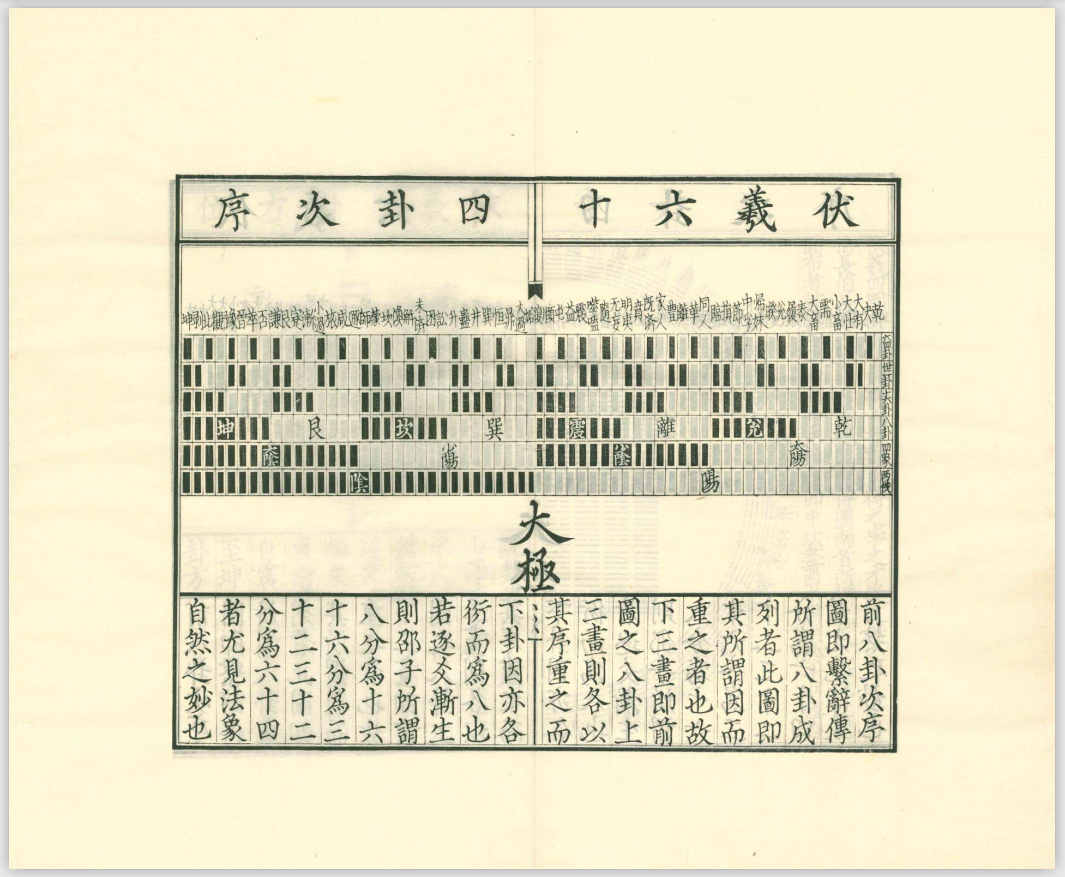 伏羲六十四卦次序
乾 夬 大有 大壯 小畜 需 大畜 泰 履 兌 睽 歸妹 中孚 節 損 臨 同人 革 離 豐 家人 既濟 賁 明夷 无妄 隨 噬嗑 震 益 屯 頤 復 姤 大過 鼎 恒 巽 井 蠱 升 訟 困 未濟 解 渙 坎 蒙 師 遯 咸 旅 小過 漸 蹇 艮 謙 否 萃 晉 豫 觀 比 剝 坤
六十四卦
十六卦
八卦 乾 兌 離 震 巽 坎 艮 坤
四象 太陽 少陰 少陽 太陰
兩儀 陽 陰
大極
前八卦次序
圖即繫辭傳
所謂八卦成
列者此圖即
其所謂因而
重之者也故
下三畫即前
圖之八卦上
三畫則各以
其序重之而
下卦因亦各
衍而爲八也
若逐爻漸生
則邵子所謂
八分爲十六
十六分爲三
十二三十二
分爲六十四
者尤見法象
自然之妙也